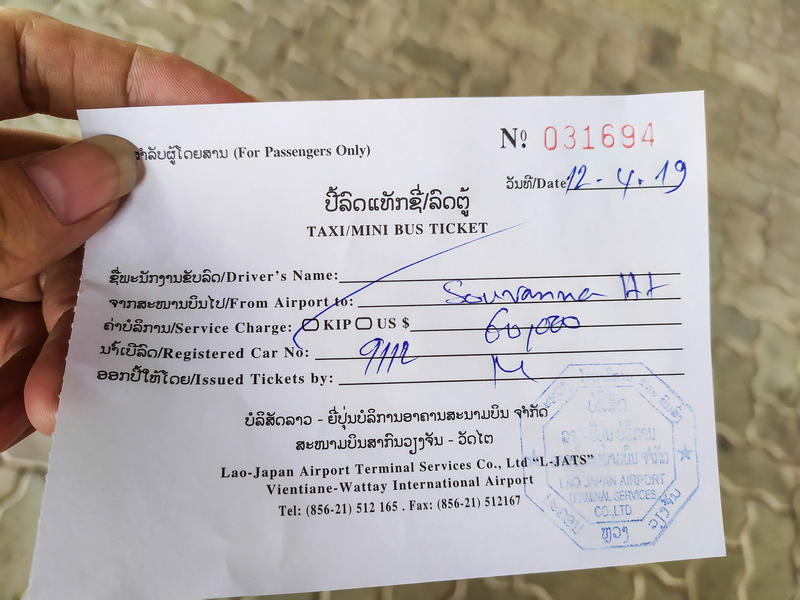 ສຳລັບຜູ້ໂດຍສານ (For Passengers Only)
Nº 031694
ວັນທີ/Date 12-4.19
ປີ້ລົດແທັກຊີ່/ລົດຕູ້
TAXI/MINI BUS TICKET
ຊື່ພະນັກງານຂັບລົດ/Driver's Name:
ຈາກສະໜາມບິນໄປ/From Airport to: Souvanna Ht
ຄ່າບໍລິການ/Service Charge: KIP US $ 60,000
ນຳ້ເບີລົດ/Registered Car No: 9112
ອອກປີ້ໃຫ້ໂດຍ/Issued Tickets by:
ບໍລິສັດລາວ - ຍີ່ປຸ່ນບໍລິການອາຄານສະນາມບິນ ຈຳກັດ
ສະໜາມບິນສາກົນວຽງຈັນ - ວັດໄຕ
Lao-Japan Airport Terminal Services Co., Ltd “L-JATS”
Vientiane-Wattay International Airport
Tel: (856-21) 512 165 . Fax: (856-21) 512167
ບໍລິສັດ
ລາວ-ຍີ່ປຸ່ນ ບໍລິການ
LAO JAPAN AIRPORT
TERMINAL SERVICES
CO.,LTD
ນະຄອນ ຫຼວງ ວຽງຈັນ